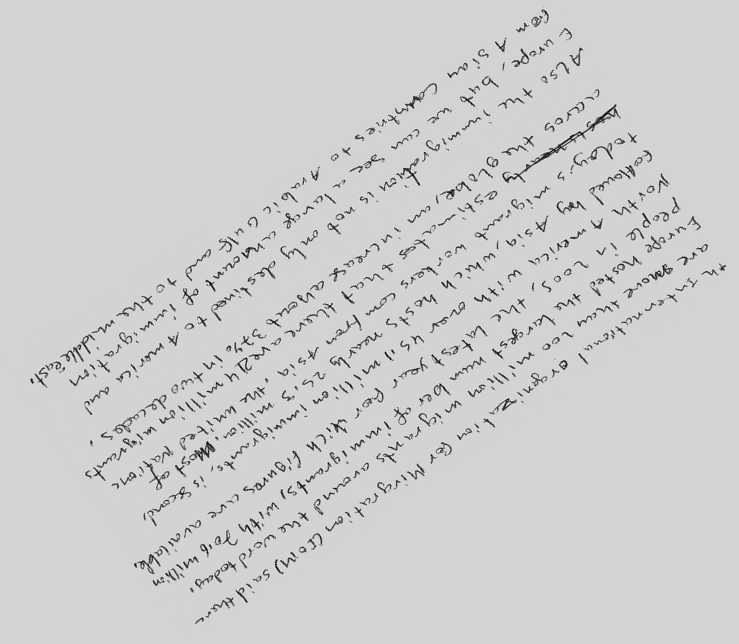 th International oragnization for Mirgration (IOM) said there
are more than 200 million migrants around the word today.
Europe hosted the largest number of immigrants, with 70.6 million
People in 2005, the latest year for which figures are available.
North America with over 45.1 million immigrants, is second,
followed by Asia, which hosts nearly 25.3 million. Most of
today's migrant workers com from Asia, the united Nations
estimates that there are 214 million migrants
acros the globe, an increase about 37% in two decades.
Also the immigration is not only destined to America and
Europe, but we can see a large amount of immigration
from Asian countries to Arabic Gulf and to the middle East.